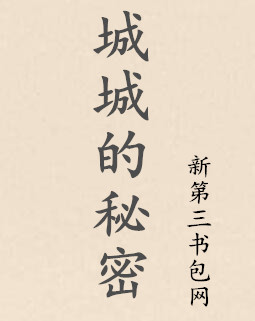 城城的秘密
新第三书包网